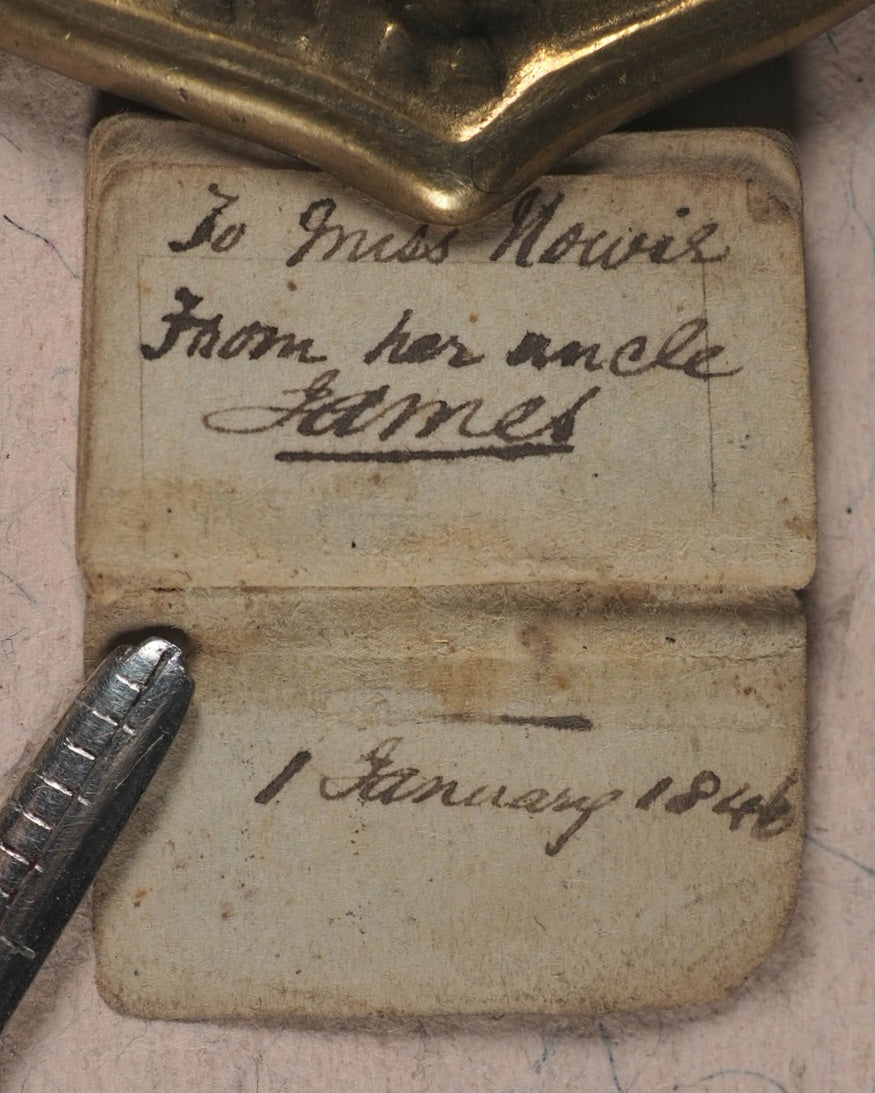 To Miss Howie
From her uncle
James
1 January 1846